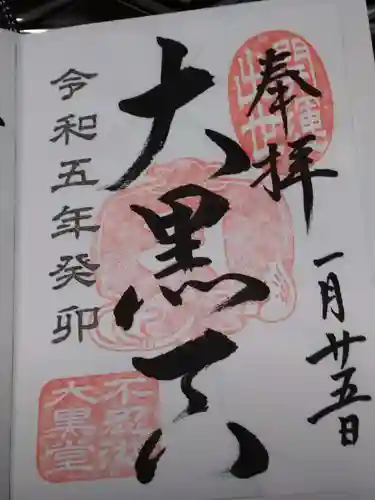 開運
出世
奉拝
一月廿五日
大黒天
令和五年癸卯
不忍池
大黒堂